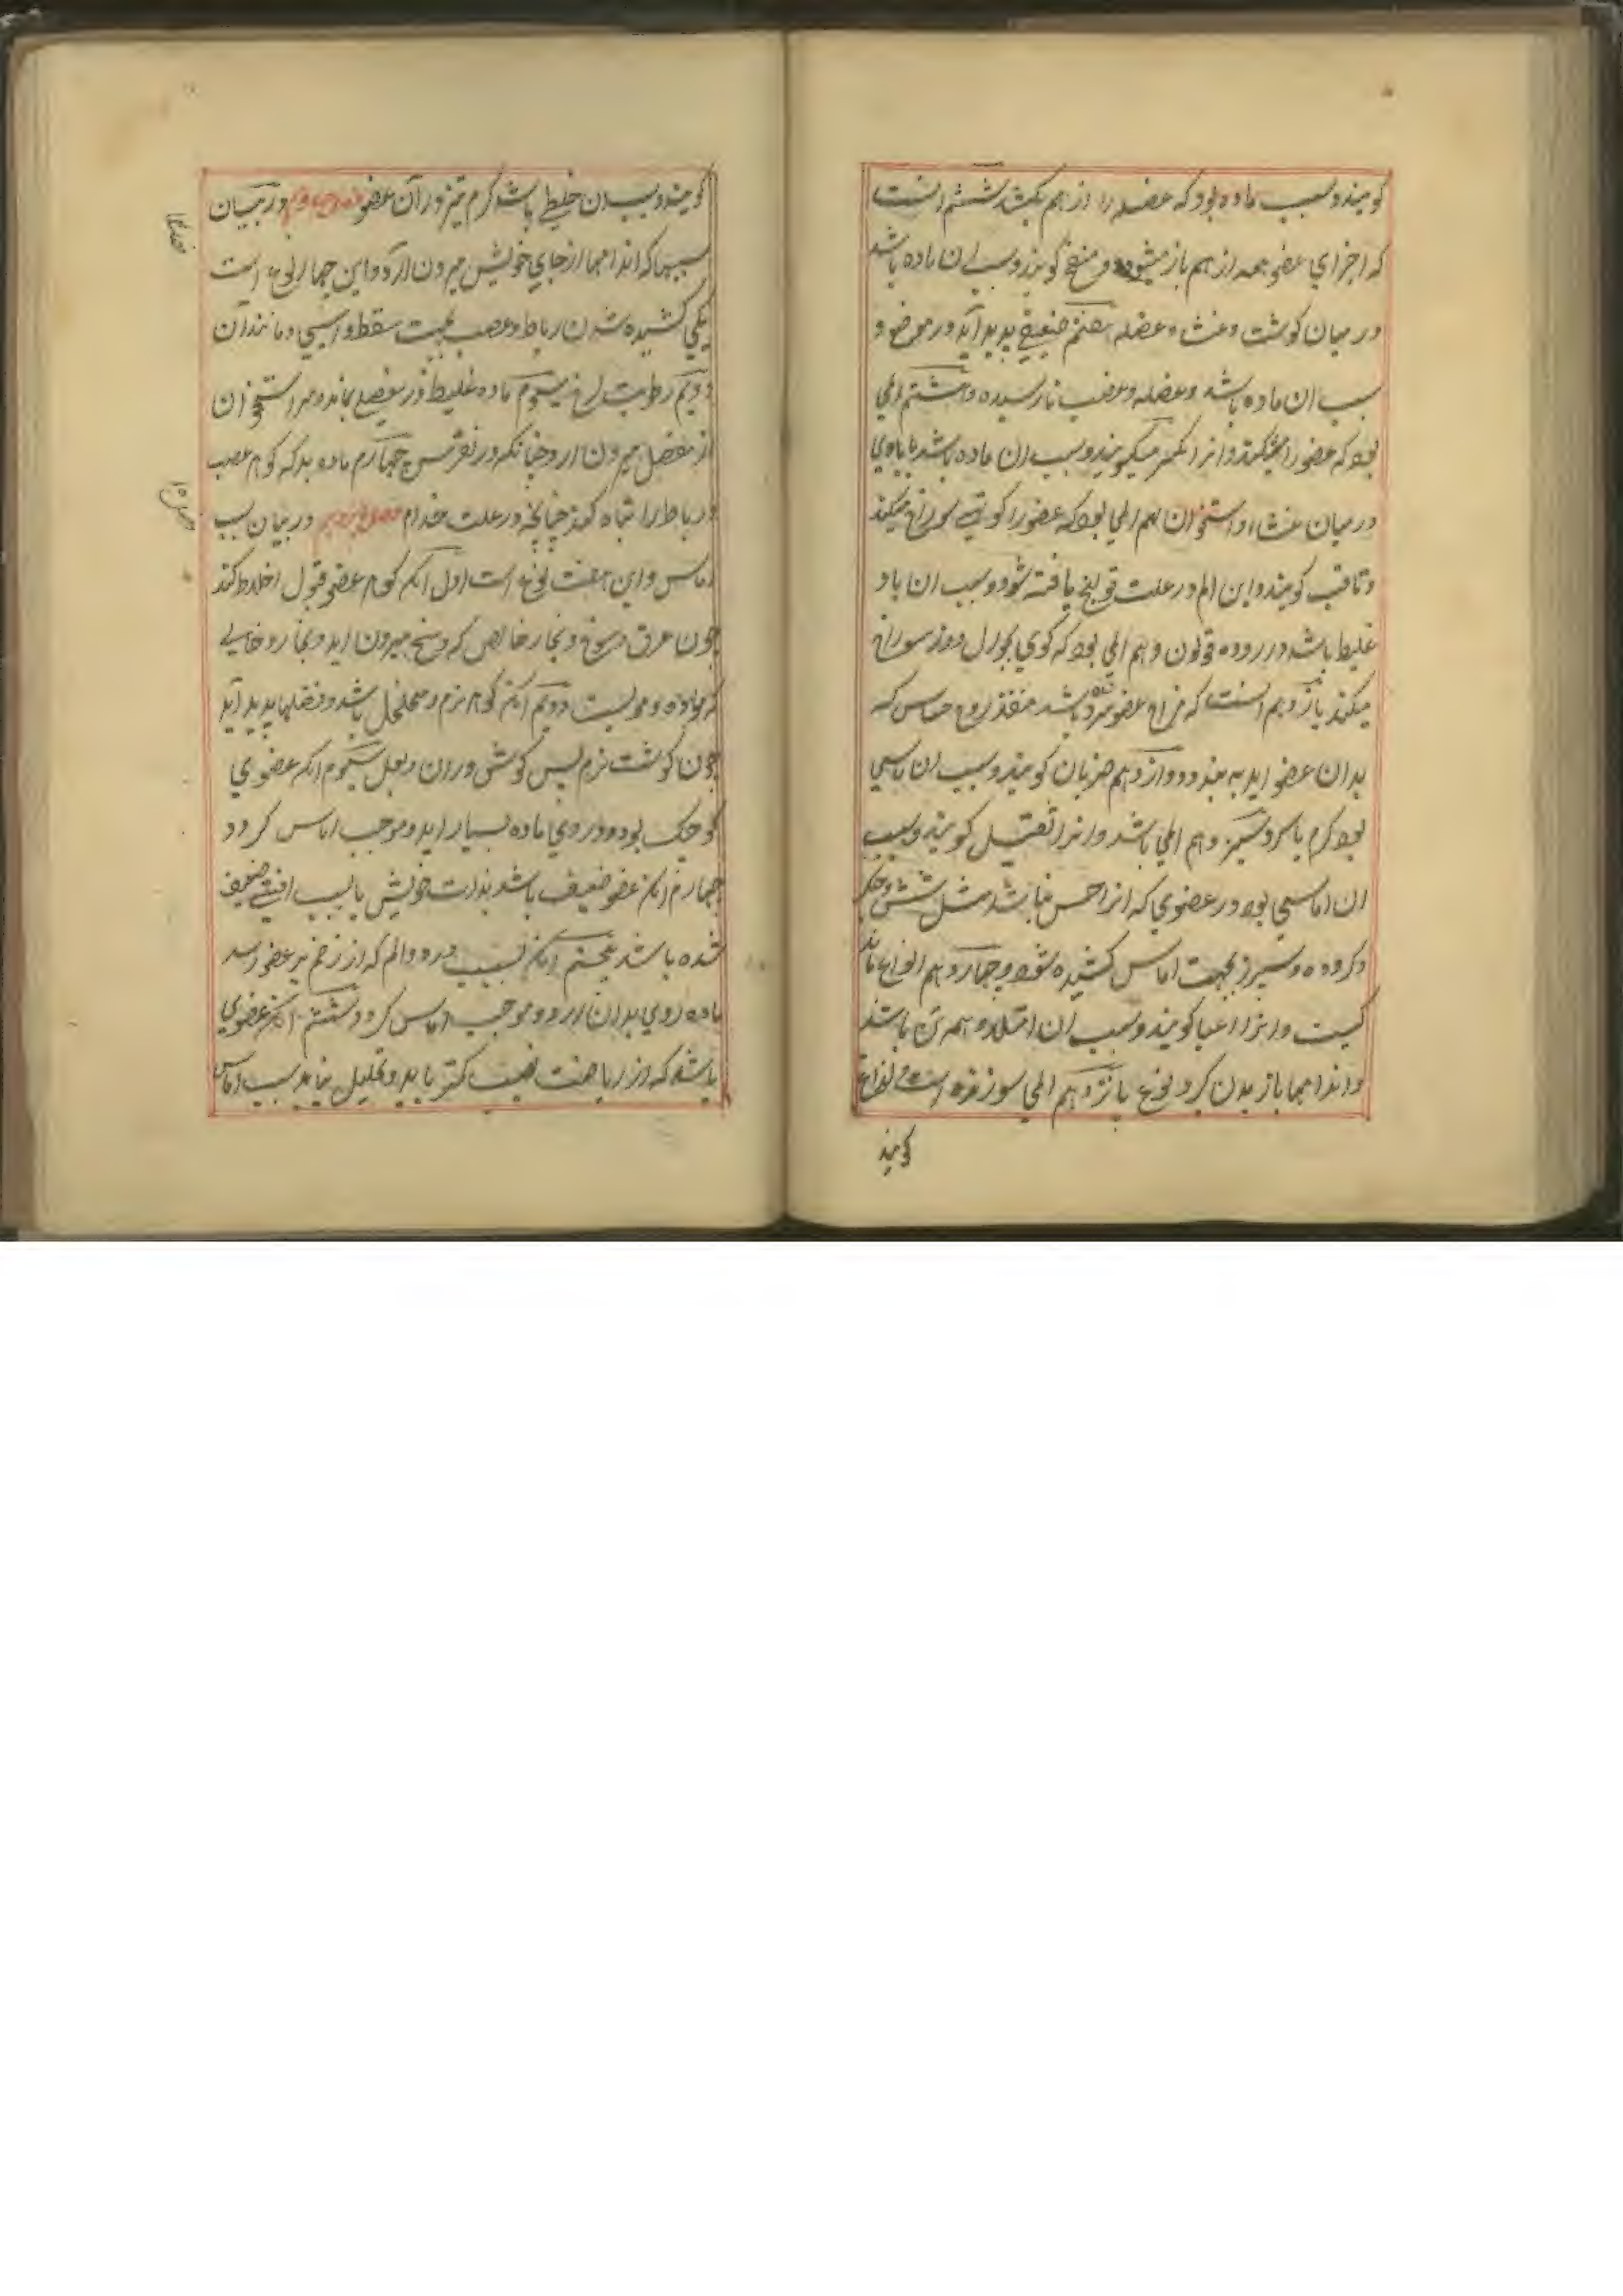 کویند و سبب ماده بود که عضله را از هم بکشد ششم انست
که اجزای عضو همه از هم باز میشود و منفخ کویند و سبب ان ماده باشد
در میان کوشت و غشاء عضله هفتم ضعیفی بدید آید در موضع و
سبب ان ماده باشد و عضله و عصب نارسیده و هشتم المی
بود که عضو را میشکند و انرا مکسر میکویند و سبب ان ماده باشد یا بادی
در میان غشاء و استخوان نهم المی بود که عضو را کویی سوراخ میکند
و ثاقب کویند و این الم در علت قولنج یافته شود و سبب ان باد
غلیظ باشد در روده قولون دهم المی بود که کوی بجوال دوز سوراخ
میکند یازدهم انست که مزاج عضو سرد شده باشد منفذ روح حساس که
بدان عضو اید به بندد دوازدهم ضربان کویند و سبب ان اماسی
بود کرم یا سرد سیزدهم المی باشد و انرا ثقیل کویند و سبب
ان اماسی بود در عضوی که انرا حس نباشد مثل شش و جکر
و کرده و سپرز بجهت اماس کشیده شود و چهاردهم انواع ماند
کیست و انرا اعیا کویند و سبب ان امتلاء همه تن باشد
و اندامها باز بدن کرد نوع پانزدهم المی سوزنده است و لذاع
کویند
کویند و سبب ان خلط باشد کرم تیز در آن عضو فصل چهاردهم در بیان
سببها که اندامها از جای خویش بیرون ارد و این چهار نوع است
یکی کشیده شدن رباط و عصب بجهت سقطه و اسیبی و مانند آن
دویم رطوبت لزج سیوم ماده غلیظ در مفصل بماند و مر استخوان
از مفصل بیرون ارد چنانکه در نقرس چهارم ماده بد که کوهر عصب
و رباط را تباه کند چنانچه در علت جذام فصل پانزدهم در بیان سبب
اماس و این هفت نوع است اول آنکه کوهر عضو قبول اخلاط کند
چون عرق و وسخ و بخار خالص که وسخ بیرون اید و بخار دخانی
که مواده مویست دویم آنکه کوهر نرم و متخلخل باشد و فضلها پدید آید
چون کوشت نرم پس کوش و ران و بغل سیوم انکه عضوی
کوچک بود و در وی ماده بسیار اید و موجب اماس کردد
چهارم انکه عضو ضعیف باشد بذات خویش یا بسبب افتی ضعیف
شده باشد پنجم آنکه بسبب درد و الم که از زخم بر عضو رسد
ماده روی بدان ارد و موجب اماس کردد ششم انکه عضوی
باشد که از ریاضت نصیب کمتر یابد و تحلیل نیابد سبب اماس
فصل ۱۴
فصل ۱۵